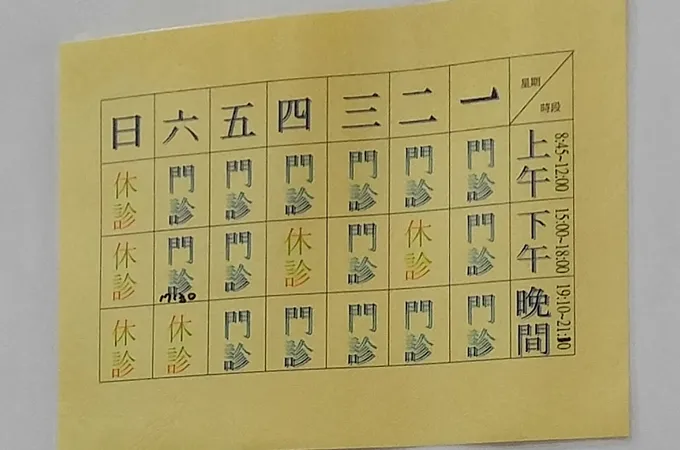 星期 時段 一 二 三 四 五 六 日
上午 8:45~12:00 門診 門診 門診 門診 門診 門診 休診
下午 15:00~18:00 門診 休診 門診 休診 門診 門診 休診
晚間 19:10~21:30 門診 門診 門診 門診 門診 休診 休診